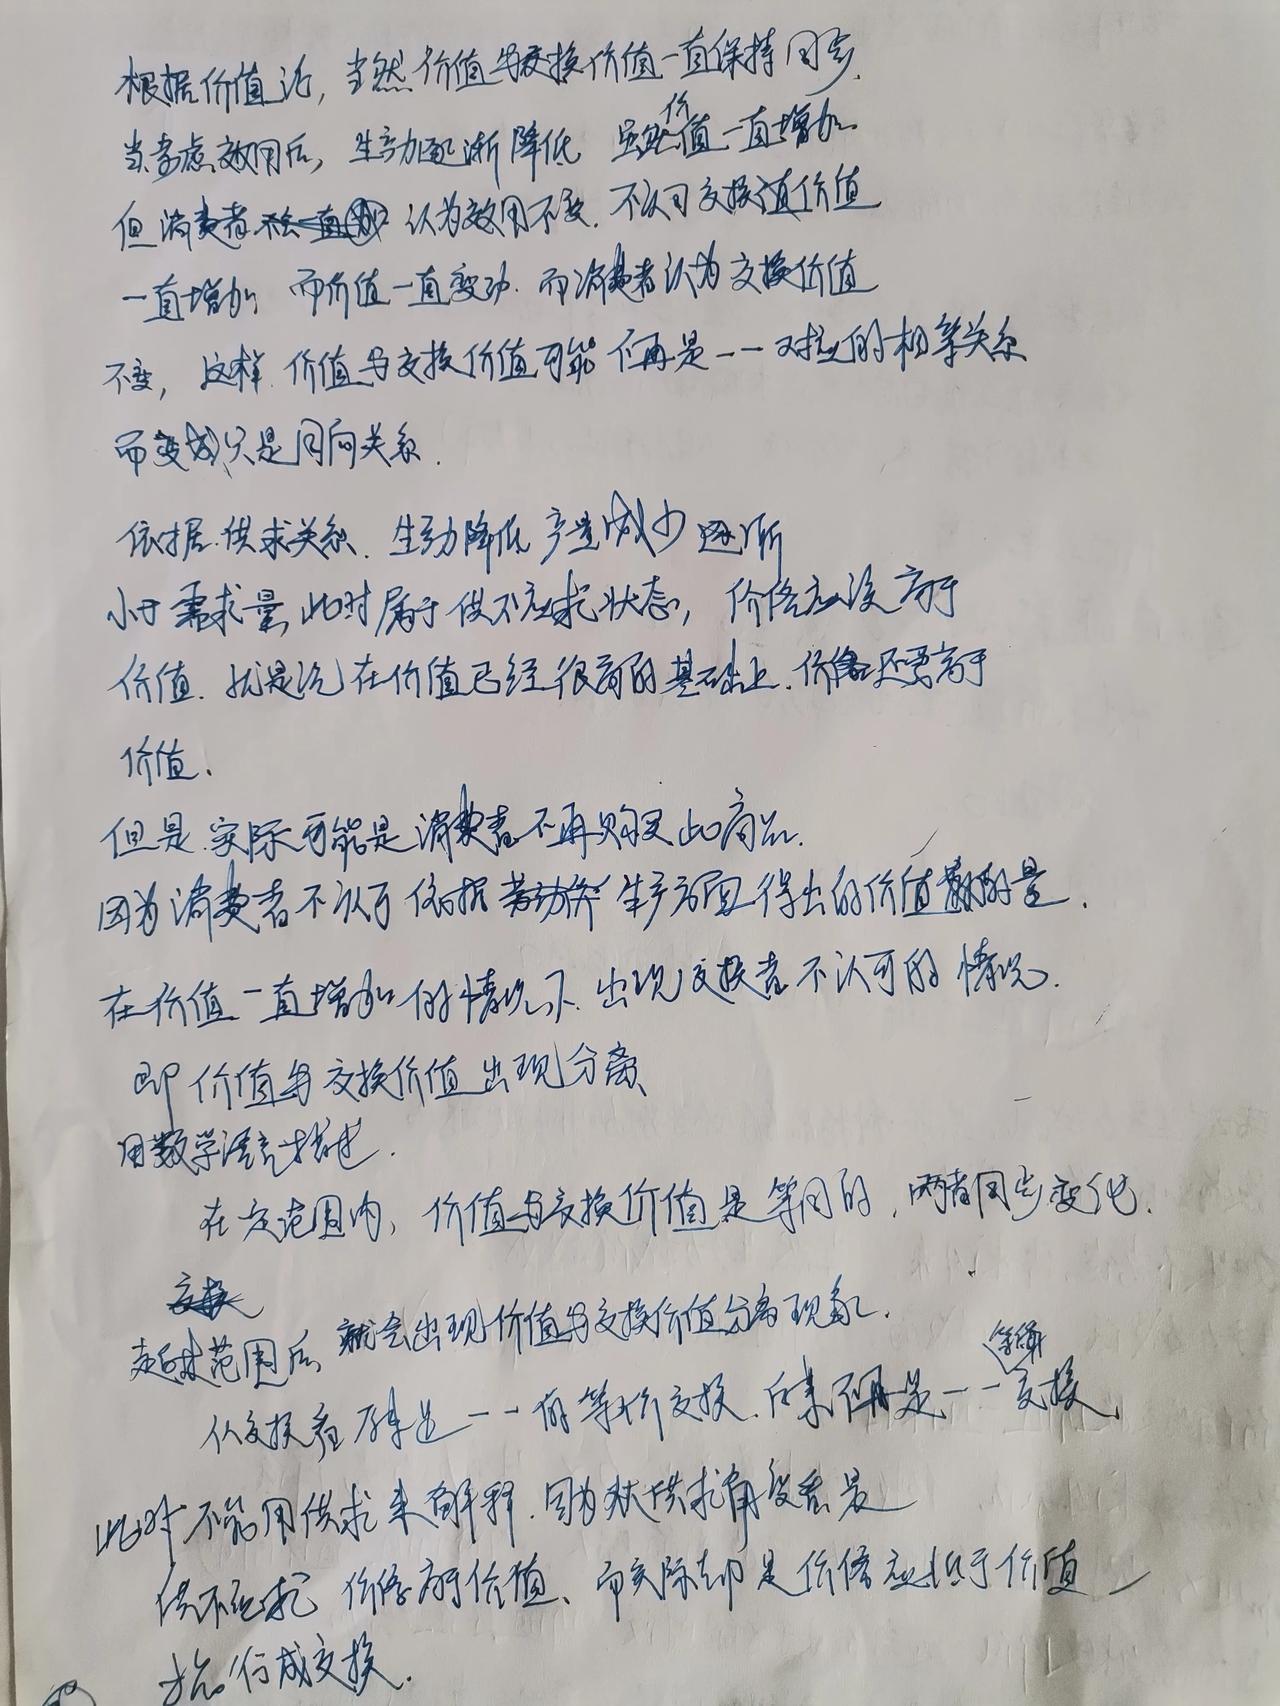 根据价值论，当然价值与交换价值一直保持同步.
当考虑效用后，生产力逐渐降低 虽然价值一直增加
但消费者认为效用不变. 不认可交换价值
一直增加 而价值一直变动. 而消费者认为交换价值
不变，这样 价值与交换价值可能不再是一一对应的相等关系
而变成只是同向关系.
依据供求关系. 生产力降低 产量减少 逐渐
小于需求量，此时属于供不应求状态，价格应该高于
价值. 就是说在价值已经很高的基础上. 价格还要高于
价值.
但是 实际可能是消费者不再购买此商品.
因为消费者不认可依据生产方面得出的价值的量.
在价值一直增加的情况下. 出现交换者不认可的情况.
即价值与交换价值出现分离
用数学语言描述.
在一定范围内，价值与交换价值是等同的. 两者同步变化.
超过范围后 就会出现价值与交换价值分离现象.
从交换看 原来是一一的等价交换. 后来不再是一一等价交换.
此时不能用供求来解释. 因为从供求角度看是
供不应求 价格高于价值、而实际却是价格应低于价值
才能形成交换.